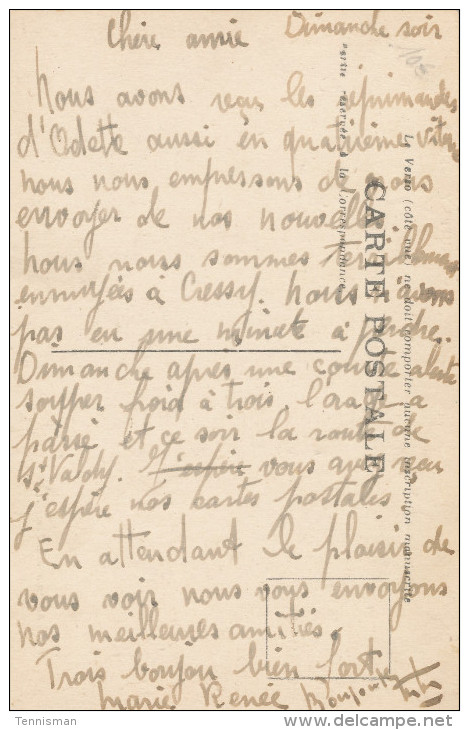 Chère amie Dimanche soir
Nous avons reçu les réprimandes
d'Odette aussi en quatrième vitesse
nous nous empressons de vous
envoyer de nos nouvelles
nous nous sommes terriblement
ennuyées à Cressy. Nous n'avons
pas eu une minute à perdre.
Dimanche après une course
souper froid à trois l'orage a
passé et ce soir la route de
St Valery. J'espère vous avez reçu
j'espère nos cartes postales
En attendant le plaisir de
vous voir nous vous envoyons
nos meilleures amitiés.
Trois boujou bien fort
Marie Renée
CARTE POSTALE
Le Verso (côté vue) ne doit comporter aucune inscription manuscrite
Partie réservée à la Correspondance
Tennisman
delcampe.net